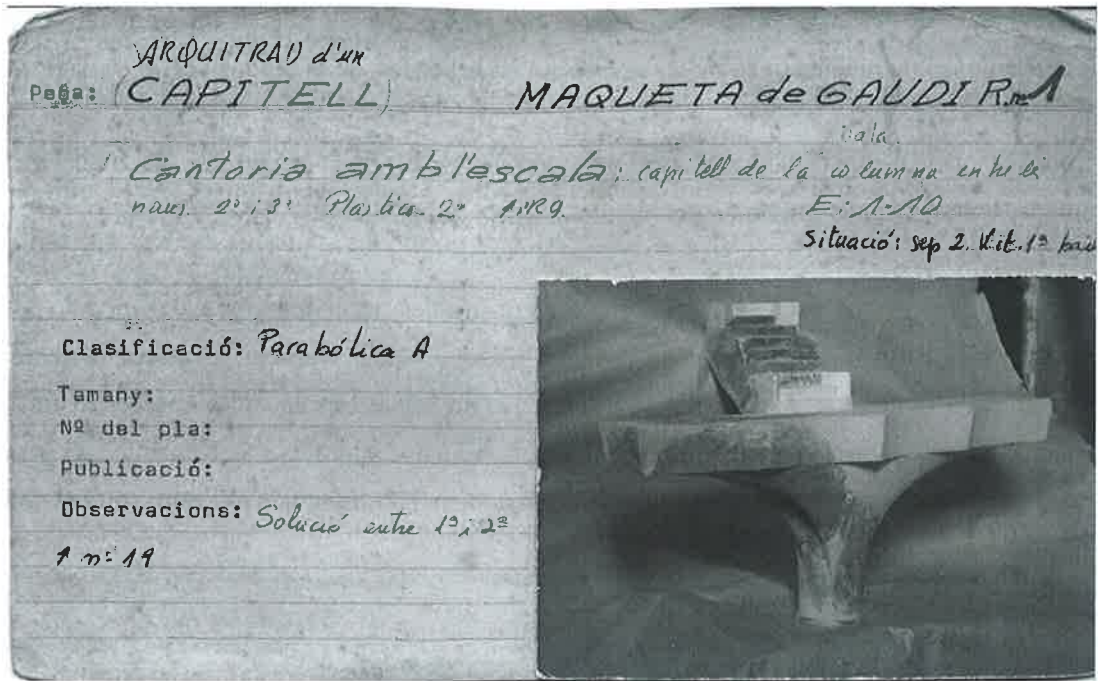 ARQUITRAU d'un
Peça: (CAPITELL) MAQUETA de GAUDI R.nº 1
Cantoria amb l'escala: capitell de la columna entre les
naus. 2ª i 3ª Plastica 2ª
E: 1-10
Situació: sep 2. Vit. 1ª
Clasificació: Parabólica A
Tamany:
Nº del pla:
Publicació:
Observacions: Solució entre 1ª i 2ª
nº 19